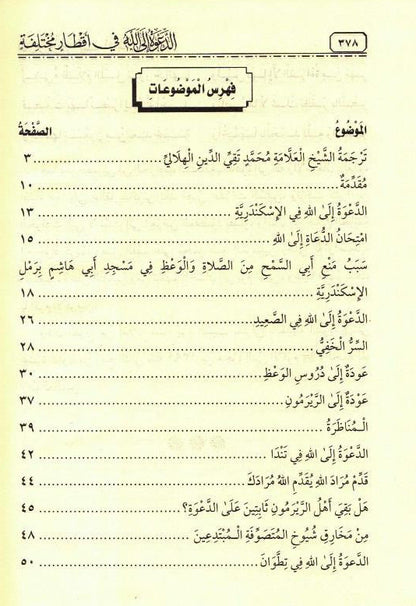 ٣٧٨ الدَّعْوَةُ إِلَى اللهِ فِي أَقْطَارٍ مُخْتَلِفَةٍ
فِهْرِسُ الْمَوْضُوعَاتِ
المَوْضُوعُ الصَّفْحَةُ
تَرْجَمَةُ الشَّيْخِ العَلَّامَةِ مُحَمَّدٍ تَقِيِّ الدِّينِ الهِلَالِيِّ ٣
مُقَدِّمَةٌ ١٠
الدَّعْوَةُ إِلَى اللهِ فِي الإِسْكَنْدَرِيَّةِ ١٣
امْتِحَانُ الدُّعَاةِ إِلَى اللهِ ١٥
سَبَبُ مَنْعِ أَبِي السَّمْحِ مِنَ الصَّلَاةِ وَالْوَعْظِ فِي مَسْجِدِ أَبِي هَاشِمٍ بِرَمْلِ
الإِسْكَنْدَرِيَّةِ ١٨
الدَّعْوَةُ إِلَى اللهِ فِي الصَّعِيدِ ٢٦
السِّرُّ الْخَفِيُّ ٢٨
عَودَةٌ إِلَى دُرُوسِ الوَعْظِ ٣٠
عَوْدَةٌ إِلَى الرَّيْرَمُونِ ٣٧
الْـمُنَاظَرَةُ ٣٩
الدَّعْوَةُ إِلَى اللهِ فِي تَنْدَا ٤٢
قَدِّمْ مُرَادَ اللهِ يُقَدِّمِ اللهُ مُرَادَكَ ٤٤
هَلْ بَقِيَ أَهْلُ الرَّيْرَمُونِ ثَابِتِينَ عَلَى الدَّعْوَةِ؟ ٤٥
مِنْ مَخَارِقِ شُيُوخِ المُتَصَوِّفَةِ الْـمُبْتَدِعِينَ ٤٨
الدَّعْوَةُ إِلَى اللهِ فِي تِطْوَانَ ٥٠